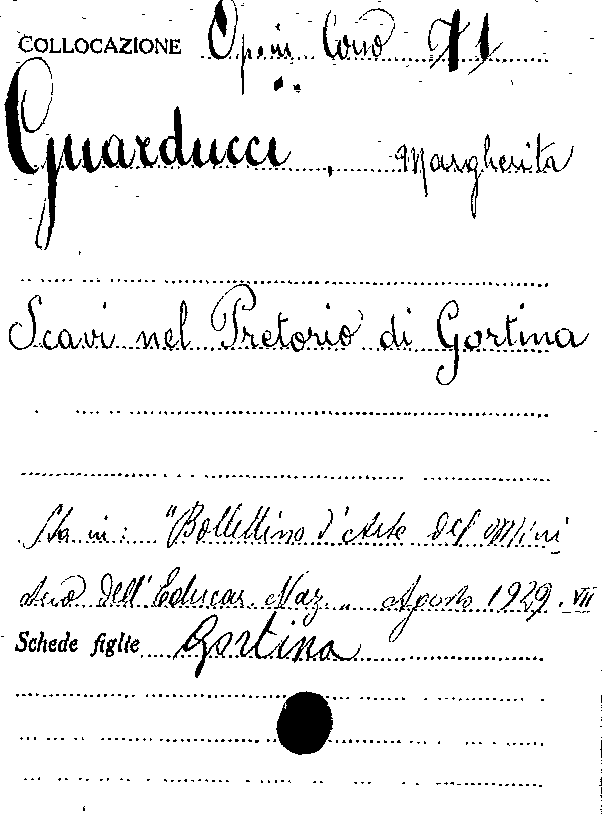 COLLOCAZIONE Opusc Cons 71
Guarducci, Margherita
Scavi nel Pretorio di Gortina
Sta in: "Bollettino d'Arte del Mini
stero dell'Educaz. Naz." Agosto 1929. VII
Schede figlie Gortina